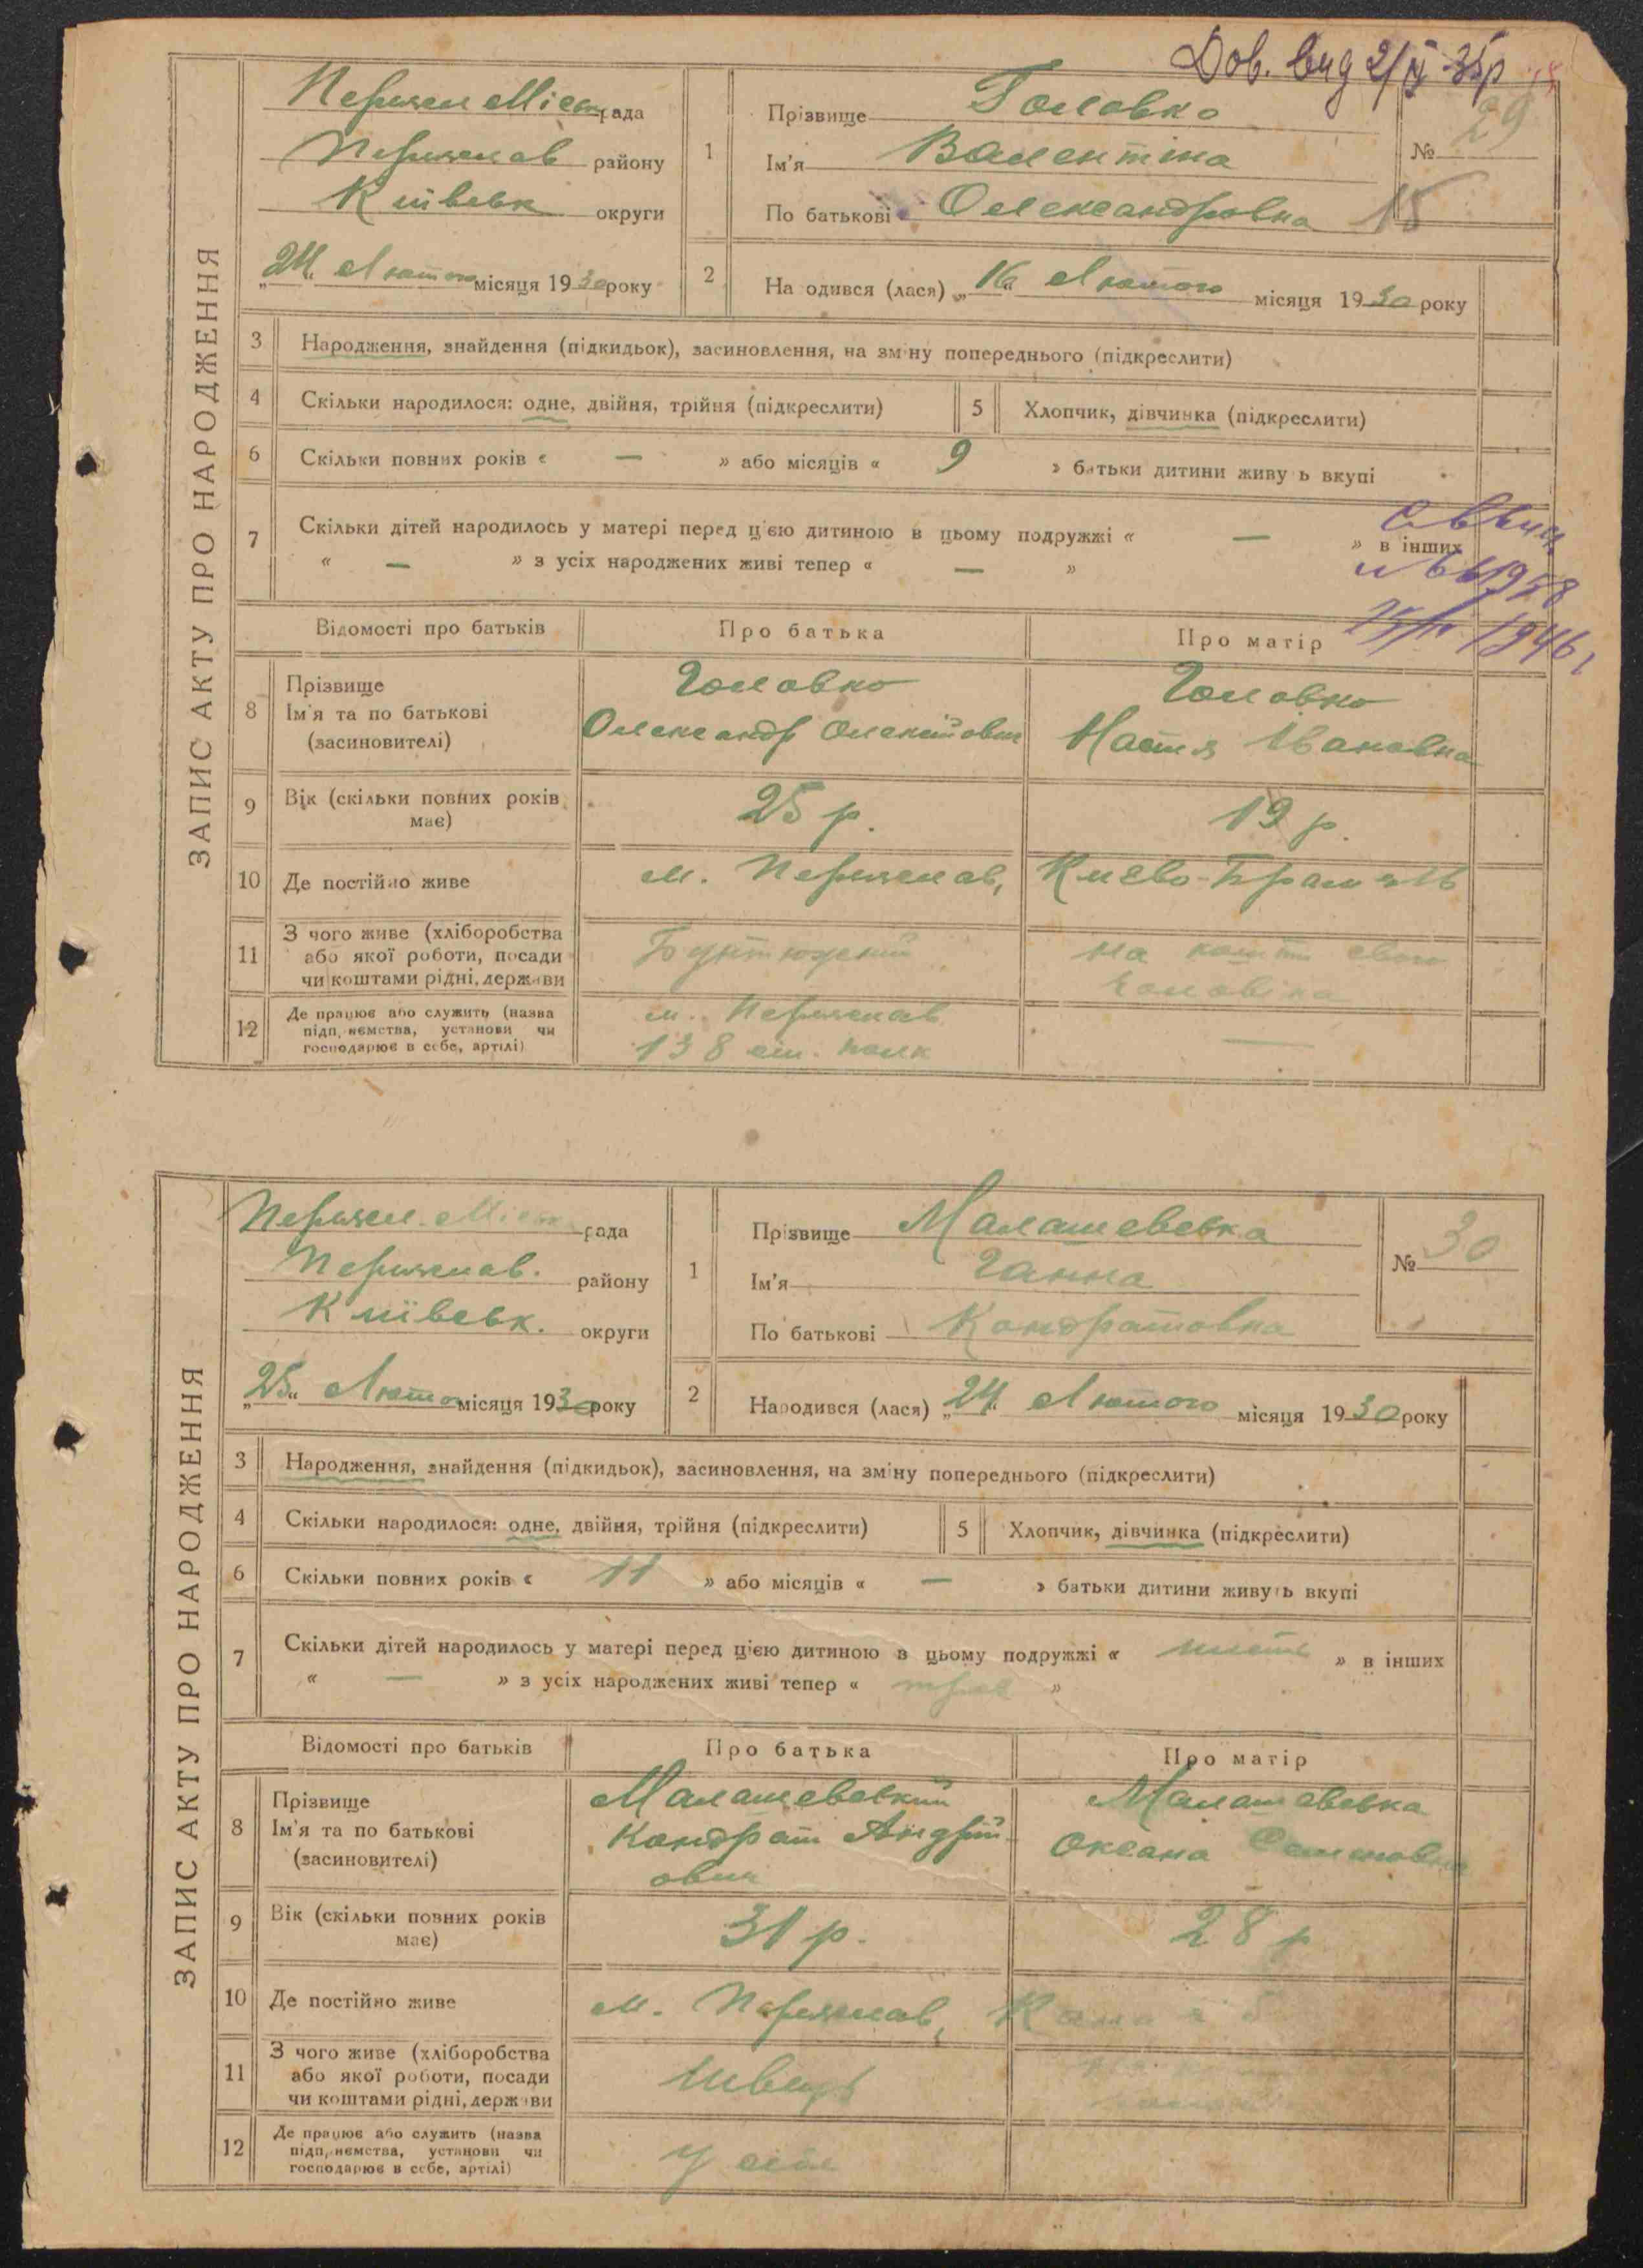 Дов. вид 2/IV-35р
ЗАПИС АКТУ ПРО НАРОДЖЕННЯ
Переясл Міськ рада
Переяслав району
Київськ округи
„24“ Лютого місяця 1930 року
1
Прізвище Головко
Ім'я Валентина
По батькові Олександровна
№ 29
15
2
На одився (лася) „16“ Лютого місяця 1930 року
3 Народження, знайдення (підкидьок), засиновлення, на зміну попереднього (підкреслити)
4 Скільки народилося: одне, двійня, трійня (підкреслити) 5 Хлопчик, дівчинка (підкреслити)
6 Скільки повних років « — » або місяців « 9 » батьки дитини живу ь вкупі
7 Скільки дітей народилось у матері перед цією дитиною в цьому подружжі « — » в інших
« — » з усіх народжених живі тепер « — »
1946
Відомості про батьків Про батька Про матір
8 Прізвище Ім'я та по батькові (засновителі)
Головко Олександр Олексійович
Головко Настя Івановна
9 Вік (скільки повних років має) 25 р. 19 р.
10 Де постійно живе м. Переяслав, Києво-Брам
11 З чого живе (хліборобства або якої роботи, посади чи коштами рідні, держави
на кошти свого
чоловіка
12 Де працює або служить (назва підп, немства, установи чи господарює в себе, артілі)
м. Переяслав —
138 полк
ЗАПИС АКТУ ПРО НАРОДЖЕННЯ
Переясл. Міськ рада
Переяслав. району
Київськ. округи
„25“ Лютого місяця 1930 року
1
Прізвище Малашевська
Ім'я Ганна
По батькові Кондратовна
№ 30
2
Народився (лася) „24“ Лютого місяця 1930 року
3 Народження, знайдення (підкидьок), засиновлення, на зміну попереднього (підкреслити)
4 Скільки народилося: одне, двійня, трійня (підкреслити) 5 Хлопчик, дівчинка (підкреслити)
6 Скільки повних років « 11 » або місяців « — » батьки дитини живуть вкупі
7 Скільки дітей народилось у матері перед цією дитиною в цьому подружжі « » в інших
« — » з усіх народжених живі тепер « троє »
Відомості про батьків Про батька Про матір
8 Прізвище Ім'я та по батькові (засиновителі)
Малашевський Кондрат Андрійович
Малашевська Оксана Семеновна
9 Вік (скільки повних років має) 31 р. 28 р
10 Де постійно живе м. Переяслав,
11 З чого живе (хліборобства або якої роботи, посади чи коштами рідні, держави
Швець
12 Де працює або служить (назва підп, немства, установи чи господарює в себе, артілі)
У себе